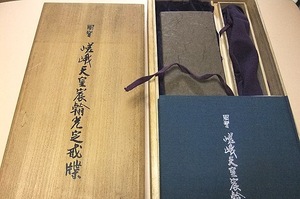 国宝
嵯峨天皇宸翰光定戒牒
国宝
嵯峨天皇宸翰